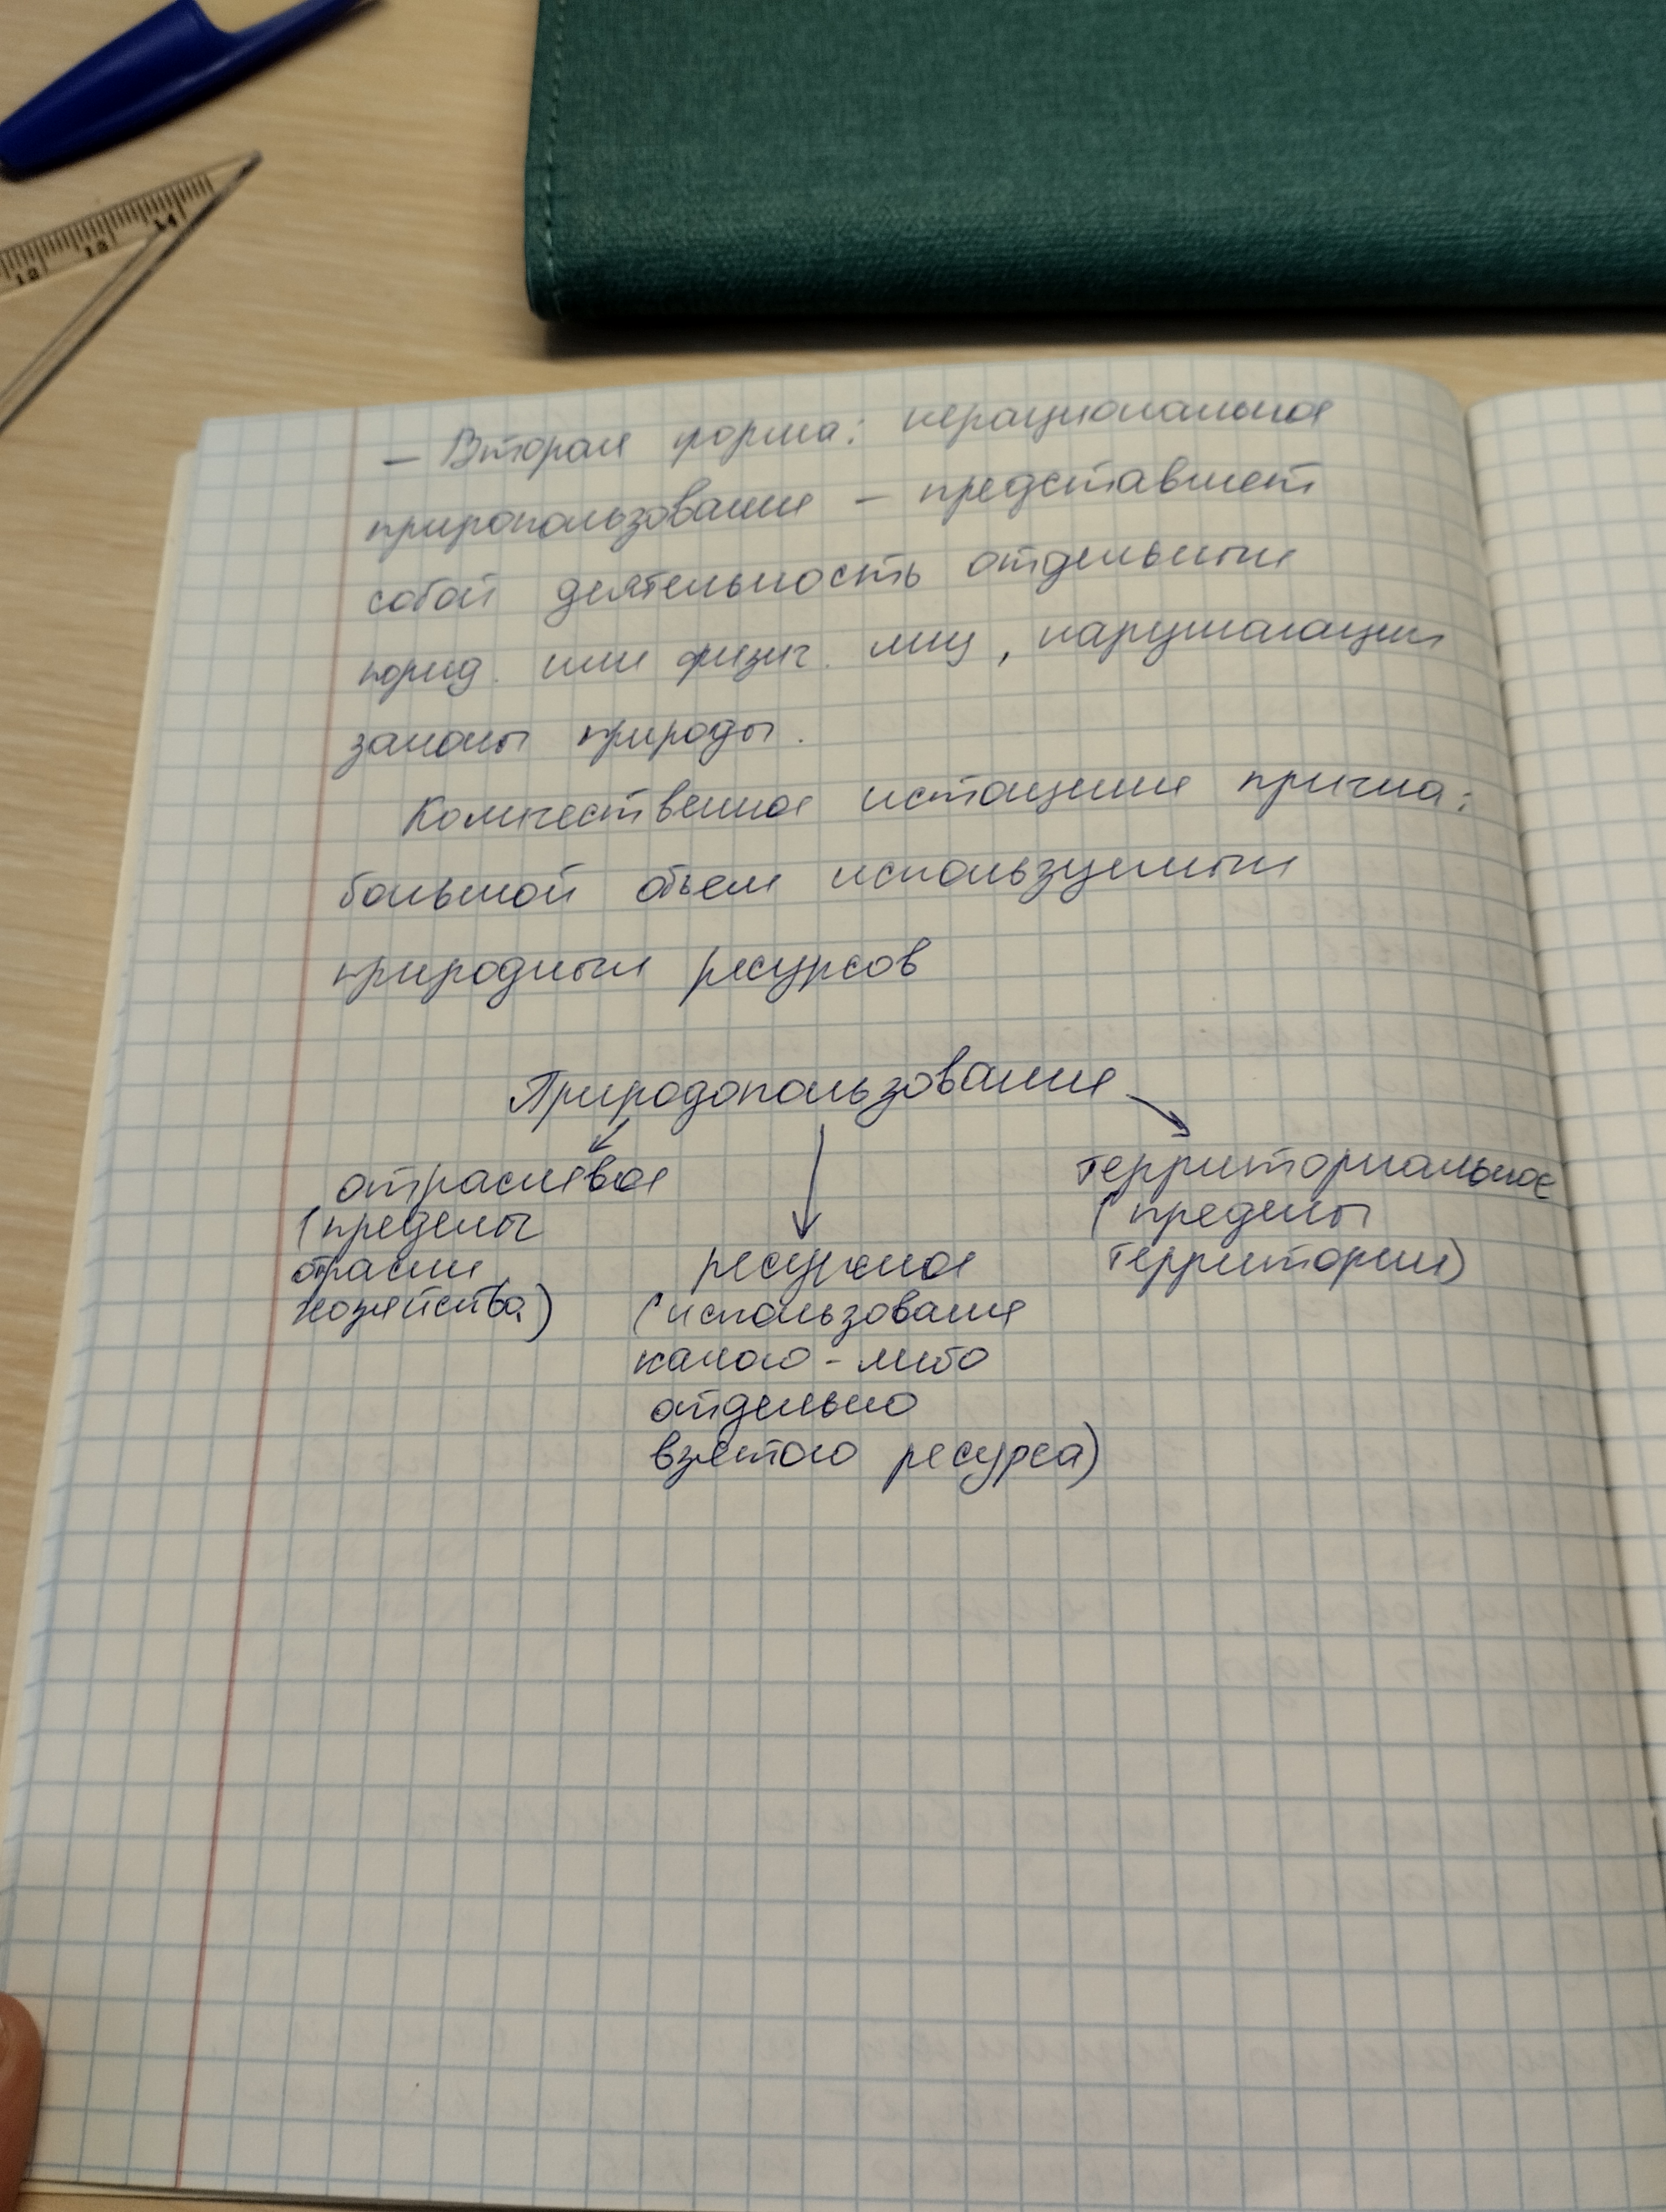 — Вторая форма: нерациональное
приропользование – представляет
собой деятельность отдельных
юрид. или физич. лиц, нарушающих
законы природы.
Количественное истощение причина:
большой объем используемых
природных ресурсов
Природопользование
отраслевое
(пределы
отрасли
хозяйства)
ресурсное
(использование
какого-либо
отдельно
взятого ресурса)
территориальное
(пределы
территории)
12 13 14